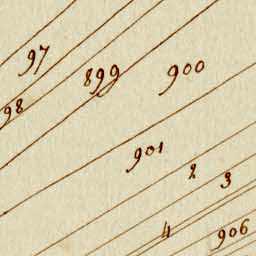 97
899
900
98
901
2
3
4
906